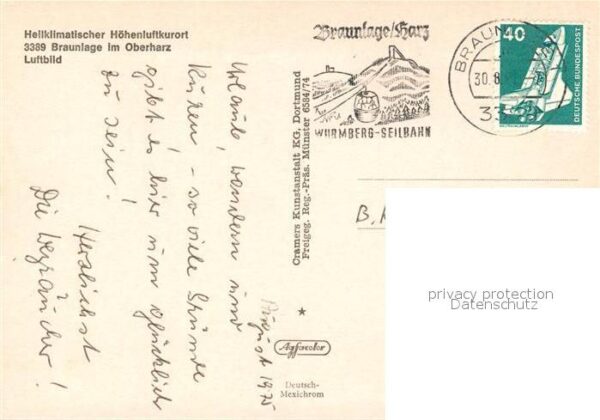 Heilklimatischer Höhenluftkurort
3389 Braunlage im Oberharz
Luftbild
August 1975
Urlaub, wandern und
Kuren - so viele Gründe
gibt es hier um glücklich
zu sein!
Herzlichst
Die
Cramers Kunstanstalt KG, Dortmund
Freigeg. Reg.-Präs. Münster 6584/74
Agfacolor
Deutsch-
Mexichrom
Braunlage/Harz
WURMBERG-SEILBAHN
BRAUN
30.8.
33
40
DEUTSCHE BUNDESPOST
B.
privacy protection
Datenschutz